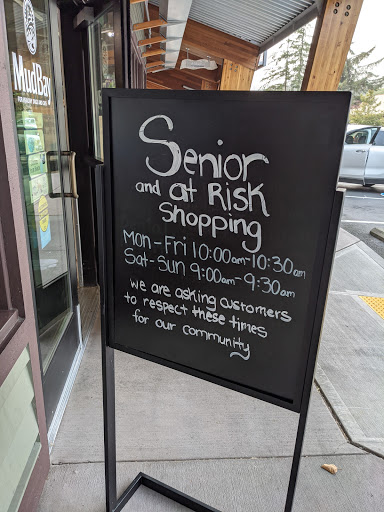 MudBay
Senior
and at Risk
Shopping
Mon-Fri 10:00am-10:30am
Sat-Sun 9:00am-9:30am
we are asking customers
to respect these times
for our community